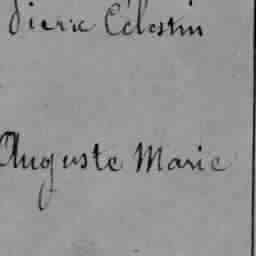 Pierre Célestin
Auguste Marie